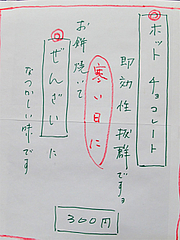 ホット チョコレート
即効性抜群ですョ
寒い日に
お餅焼いて
ぜんざい に
なつかしい味です
300円